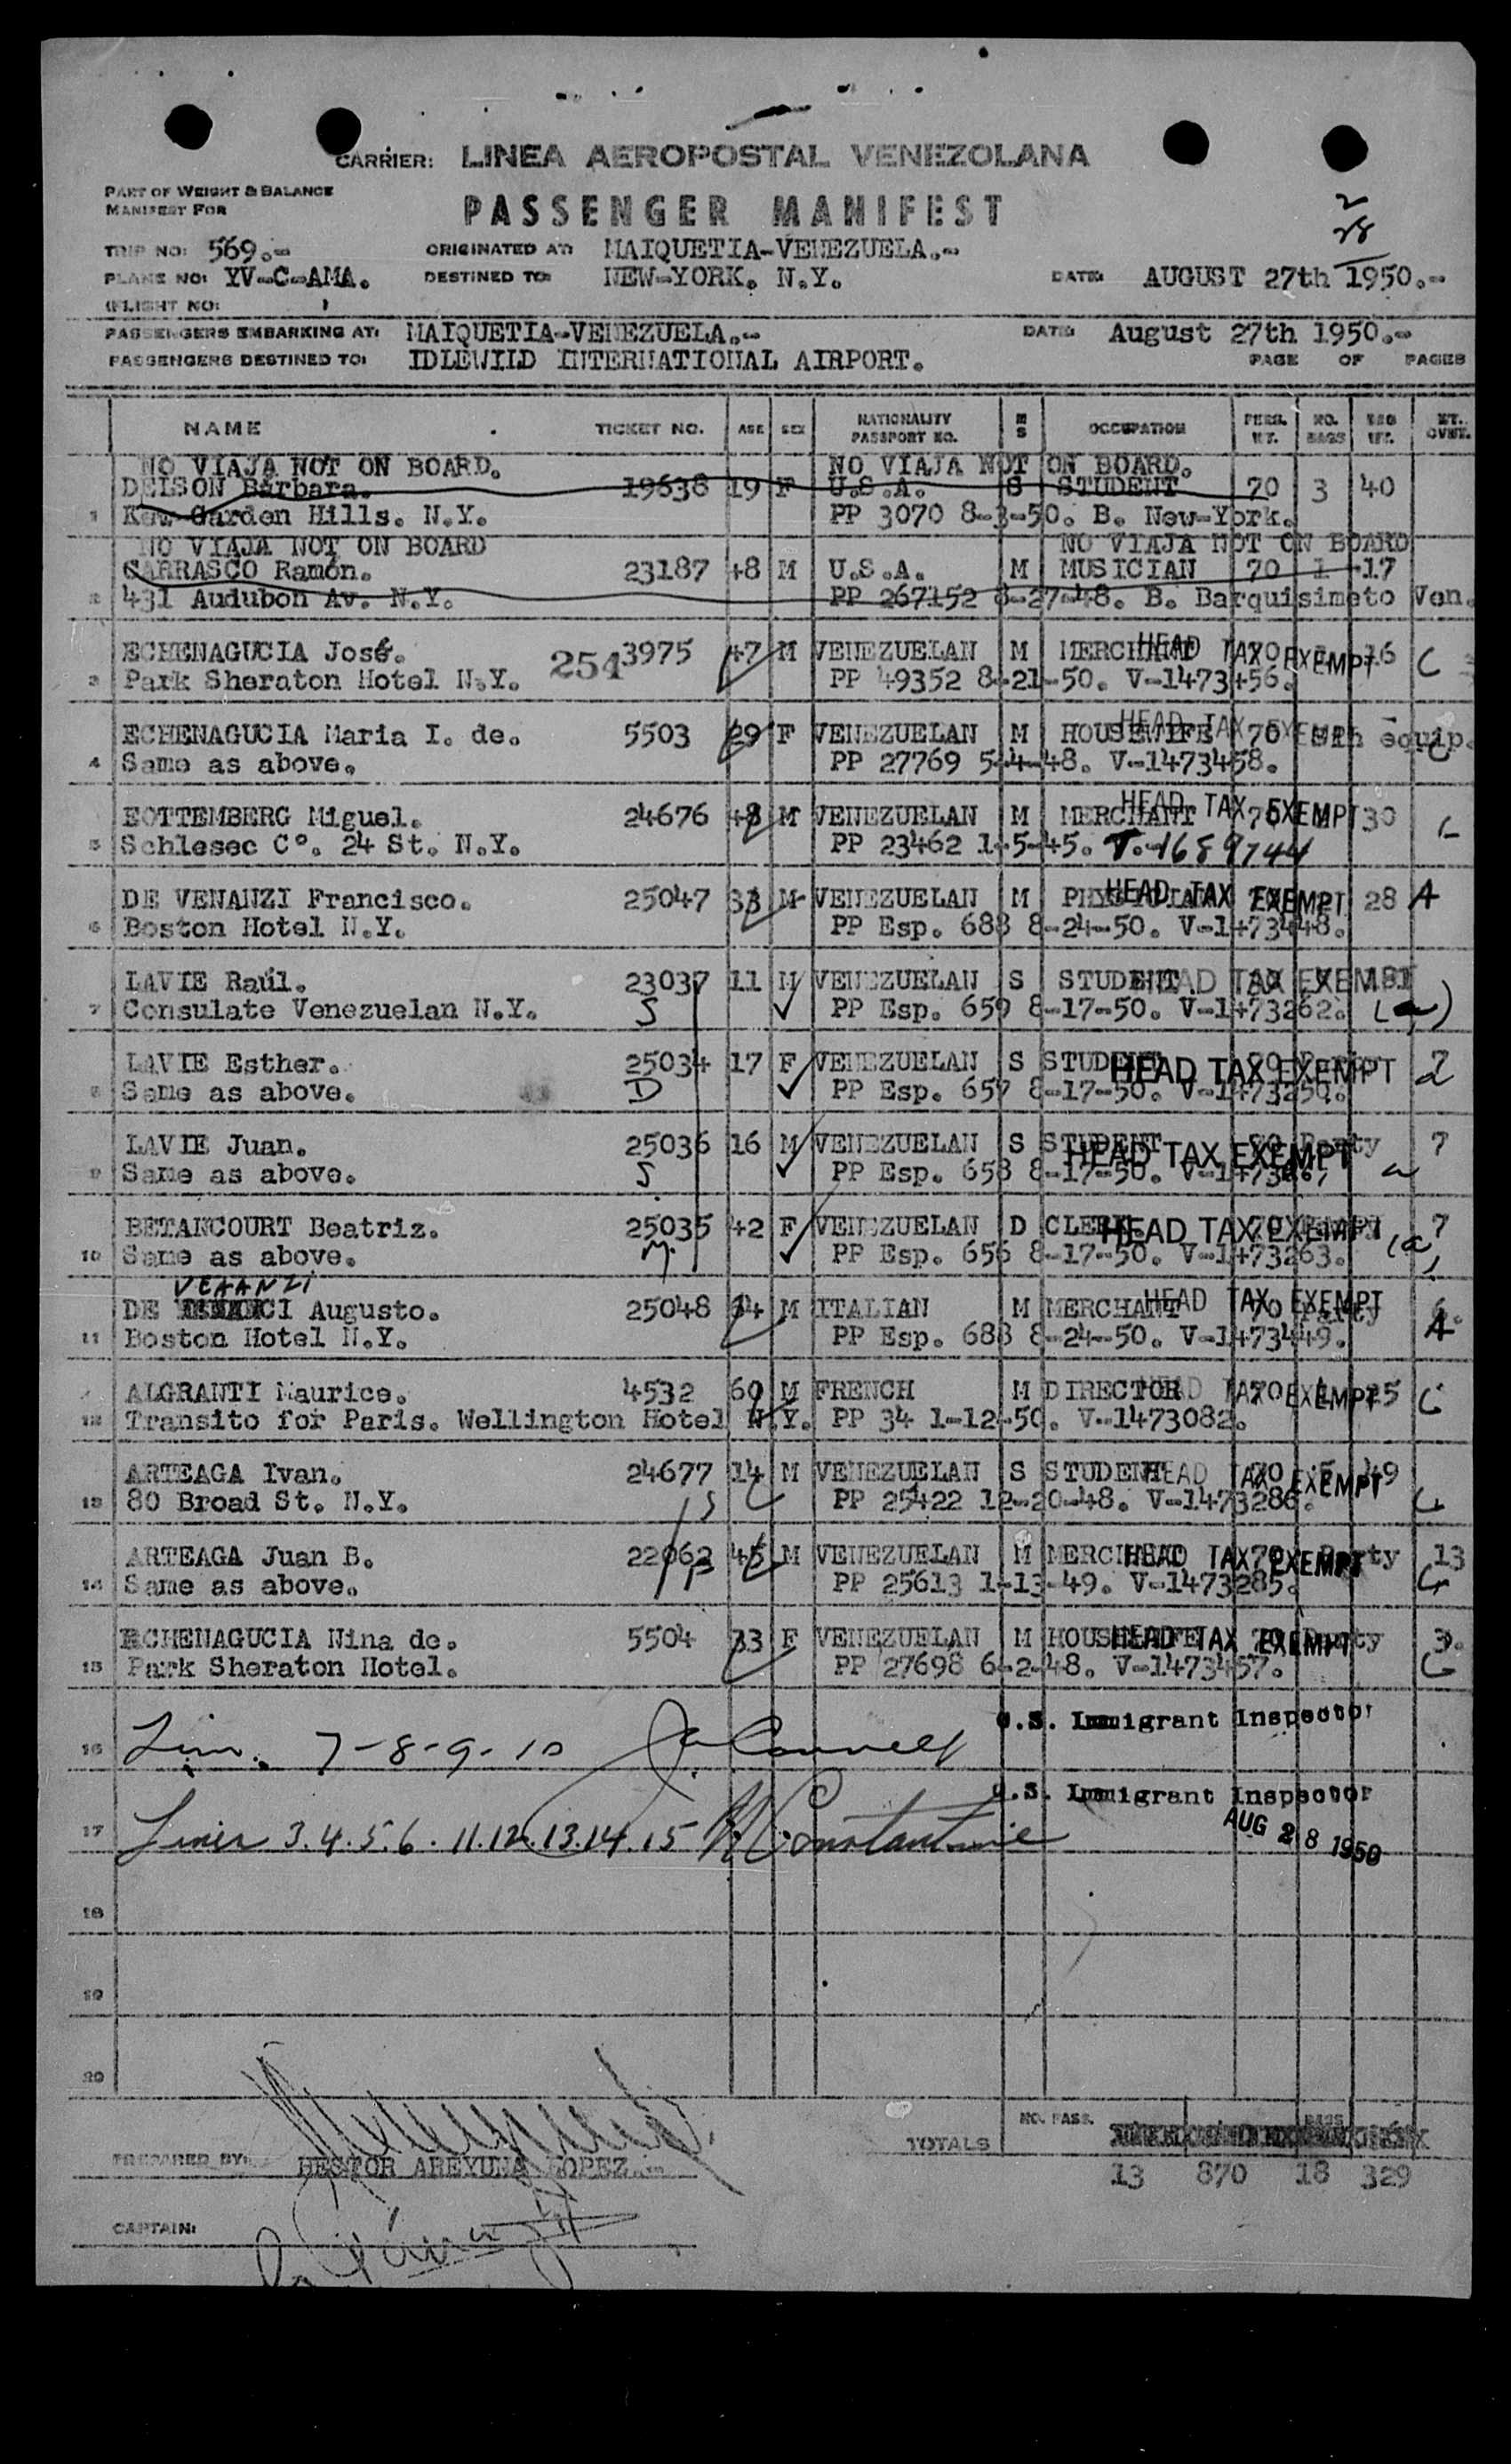 CARRIER: LINEA AEROPOSTAL VENEZOLANA
PART OF WEIGHT & BALANCE
MANIFEST FOR
PASSENGER MANIFEST
2
28
TRIP NO: 569.- ORIGINATED AT: MAIQUETIA-VENEZUELA.-
PLANE NO: YV-C-AMA. DESTINED TO: NEW-YORK. N.Y. DATE: AUGUST 27th 1950.-
(FLIGHT NO: )
PASSENGERS EMBARKING AT: MAIQUETIA-VENEZUELA.- DATE: August 27th 1950.-
PASSENGERS DESTINED TO: IDLEWILD INTERNATIONAL AIRPORT. PAGE OF PAGES
NAME TICKET NO. AGE SEX NATIONALITY PASSPORT NO. M S OCCUPATION PERS. WT. NO. BAGS BAG WT. ET. CVNT.
NO VIAJA NOT ON BOARD. NO VIAJA NOT ON BOARD.
DEISON Barbara. 19638 19 F U.S.A. S STUDENT 70 3 40
1 Kew Garden Hills. N.Y. PP 3070 8-3-50. B. New-York.
NO VIAJA NOT ON BOARD NO VIAJA NOT ON BOARD
CARRASCO Ramón. 23187 48 M U.S.A. M MUSICIAN 70 1 17
2 431 Audubon Av. N.Y. PP 267152 8-27-48. B. Barquisimeto Ven.
ECHENAGUCIA José. 254 3975 47 M VENEZUELAN M MERCHANT HEAD TAX EXEMPT 70 16 C
3 Park Sheraton Hotel N.Y. PP 49352 8-21-50. V-1473456.
ECHENAGUCIA Maria I. de. 5503 29 F VENEZUELAN M HOUSEWIFE HEAD TAX EXEMPT 70 equip. C
4 Same as above. PP 27769 5-4-48. V-1473458.
EOTTEMBERG Miguel. 24676 48 M VENEZUELAN M MERCHANT HEAD TAX EXEMPT 70 30
5 Schlesec Cº. 24 St. N.Y. PP 23462 1-5-45. T.-1689744
DE VENANZI Francisco. 25047 33 M VENEZUELAN M PHYSICIAN HEAD TAX EXEMPT 28 A
6 Boston Hotel N.Y. PP Esp. 688 8-24-50. V-1473448.
LAVIE Raúl. 23037 11 M VENEZUELAN S STUDENT HEAD TAX EXEMPT
7 Consulate Venezuelan N.Y. S PP Esp. 659 8-17-50. V-1473262. (a)
LAVIE Esther. 25034 17 F VENEZUELAN S STUDENT HEAD TAX EXEMPT
8 Same as above. D PP Esp. 657 8-17-50.
LAVIE Juan. 25036 16 M VENEZUELAN S STUDENT HEAD TAX EXEMPT Party 7
9 Same as above. S PP Esp. 658 8-17-50. a
BETANCOURT Beatriz. 25035 42 F VENEZUELAN D CLERK HEAD TAX EXEMPT 7
10 Same as above. M. PP Esp. 656 8-17-50. V-1473263. (a)
VENANZI
DE CI Augusto. 25048 M ITALIAN M MERCHANT HEAD TAX EXEMPT 70 Party
11 Boston Hotel N.Y. PP Esp. 688 8-24-50. V-1473449. A
ALGRANTI Maurice. 4532 60 M FRENCH M DIRECTOR HEAD TAX EXEMPT 70 C
12 Transito for Paris. Wellington Hotel N.Y. PP 34 1-12-50. V-1473082.
ARTEAGA Ivan. 24677 14 M VENEZUELAN S STUDENT HEAD TAX EXEMPT 70 49
13 80 Broad St. N.Y. S PP 25422 12-20-48. V-1473286. C
ARTEAGA Juan B. 22062 45 M VENEZUELAN M MERCHANT HEAD TAX EXEMPT 70 Party 13
14 Same as above. PP 25613 1-13-49. V-1473285. C
ECHENAGUCIA Nina de. 5504 33 F VENEZUELAN M HOUSEWIFE HEAD TAX EXEMPT 70 Party 3.
15 Park Sheraton Hotel. PP 27698 6-2-48. V-1473457. C
U.S. Immigrant Inspector
16 7-8-9-10
U.S. Immigrant Inspector
17 Lines 3.4.5.6. 11.12.13.14.15 Constantine AUG 28 1950
18
19
20
NO. PASS. BAGS
TOTALS
PREPARED BY: HESTOR AREYUNA LOPEZ.- 13 870 18 329
CAPTAIN: